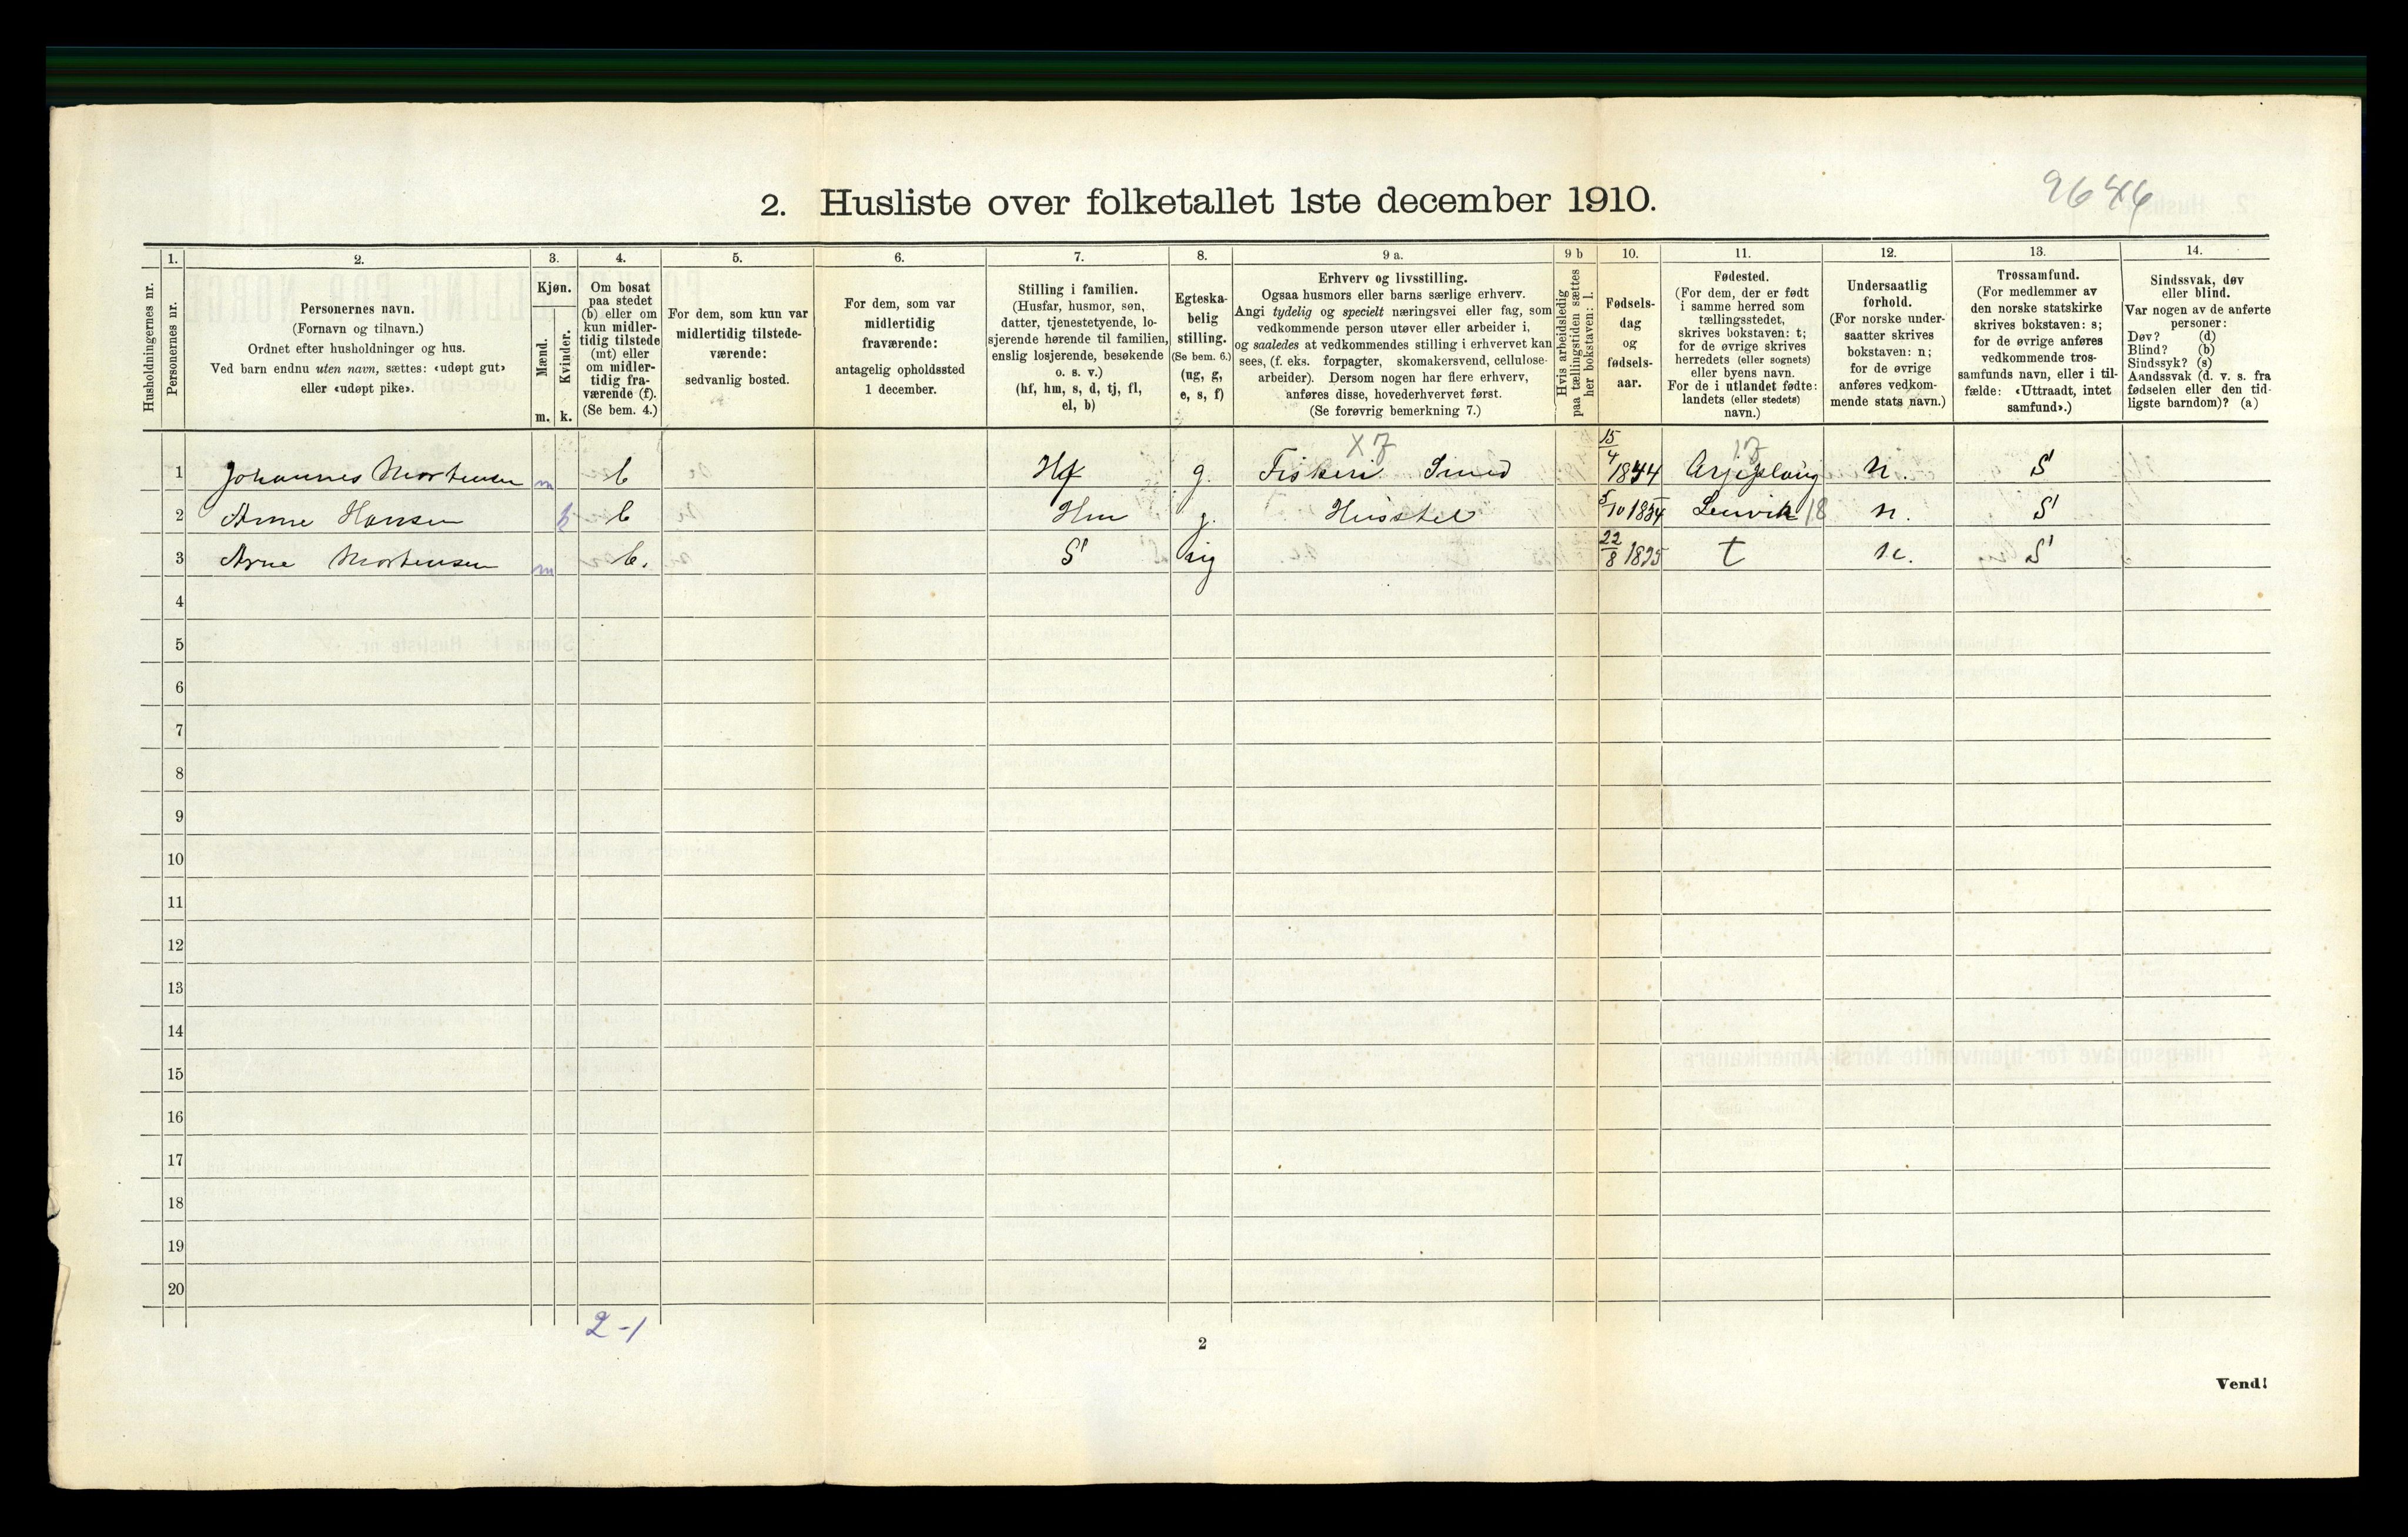 9646
2. Husliste over folketallet 1ste december 1910.
Husholdningernes nr.
1.
Personernes nr.
2.
Personernes navn.
(Fornavn og tilnavn.)
Ordnet efter husholdninger og hus.
Ved barn endnu uten navn, sættes: «udøpt gut»
eller «udøpt pike».
3.
Kjøn.
Mænd.
Kvinder.
m. k.
4.
Om bosat
paa stedet
(b) eller om
kun midler-
tidig tilstede
(mt) eller
om midler-
tidig fra-
værende (f).
(Se bem. 4.)
5.
For dem, som kun var
midlertidig tilstede-
værende:
sedvanlig bosted.
6.
For dem, som var
midlertidig
fraværende:
antagelig opholdssted
1 december.
7.
Stilling i familien.
(Husfar, husmor, søn,
datter, tjenestetyende, lo-
sjerende hørende til familien,
enslig losjerende, besøkende
o. s. v.)
(hf, hm, s, d, tj, fl,
el, b)
8.
Egteska-
belig
stilling.
(Se bem. 6.)
(ug, g,
e, s, f)
9 a.
Erhverv og livsstilling.
Ogsaa husmors eller barns særlige erhverv.
Angi tydelig og specielt næringsvei eller fag, som
vedkommende person utøver eller arbeider i,
og saaledes at vedkommendes stilling i erhvervet kan
sees, (f. eks. forpagter, skomakersvend, cellulose-
arbeider). Dersom nogen har flere erhverv,
anføres disse, hovederhvervet først.
(Se forøvrig bemerkning 7.)
9 b
Hvis arbeidsledig
paa tællingstiden sættes
her bokstaven: l.
10.
Fødsels-
dag
og
fødsels-
aar.
11.
Fødested.
(For dem, der er født
i samme herred som
tællingsstedet,
skrives bokstaven: t;
for de øvrige skrives
herredets (eller sognets)
eller byens navn.
For de i utlandet fødte:
landets (eller stedets)
navn.)
12.
Undersaatlig
forhold.
(For norske under-
saatter skrives
bokstaven: n;
for de øvrige
anføres vedkom-
mende stats navn.)
13.
Trossamfund.
(For medlemmer av
den norske statskirke
skrives bokstaven: s;
for de øvrige anføres
vedkommende tros-
samfunds navn, eller i til-
fælde: «Uttraadt, intet
samfund».)
14.
Sindssvak, døv
eller blind.
Var nogen av de anførte
personer:
Døv? (d)
Blind? (b)
Sindssyk? (s)
Aandssvak (d. v. s. fra
fødselen eller den tid-
ligste barndom)? (a)
X7 17
1 Johannes Mortensen m b Hf g. Fiskeri Smed 15/4 1844 Arjeplaug n. S
2 Anne Hansen k b Hm g. Husstel 5/10 1854 Lenvik 18 n. S
3 Arne Mortensen m b. S ug 22/8 1895 t n. S
4
5
6
7
8
9
10
11
12
13
14
15
16
17
18
19
20
2-1
2
Vend!